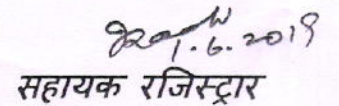 1.6.2019
सहायक रजिस्ट्रार